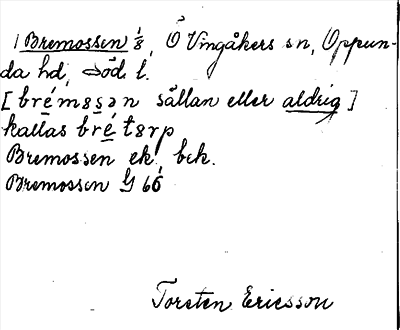 1 Bremossen 1/8, Ö Vingåkers sn, Oppun-
da hd, Söd. l.
[brémɞsən sällan eller aldrig]
kallas brétɞrp
Bremossen ek. bek.
Bremossen G 66
Torsten Ericsson